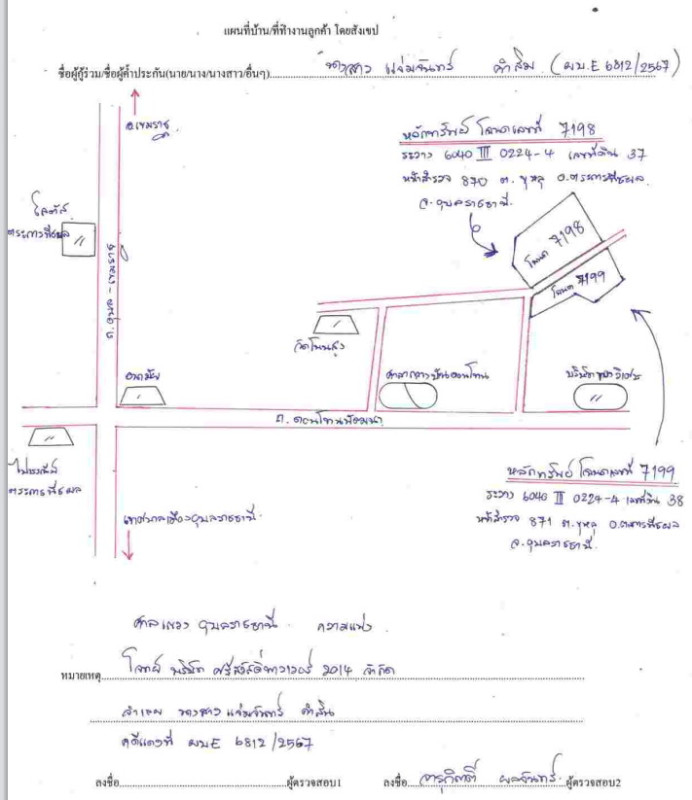 แผนที่บ้าน/ที่ทำงานลูกค้า โดยสังเขป
ชื่อผู้กู้ร่วม/ชื่อผู้ค้ำประกัน(นาย/นาง/นางสาว/อื่นๆ) นางสาว แจ่มจันทร์ คำสิม (ผบ.E 6812/2567)
อ.เขมราฐ
หลักทรัพย์ โฉนดเลขที่ 7198
ระวาง 6040 III 0224-4 เลขที่ดิน 37
หน้าสำรวจ 870 ต.ขุหลุ อ.ตระการพืชผล
จ.อุบลราชธานี
โลตัส
ตระการพืชผล
โฉนด 7198
โฉนด 7199
ถ.อุบล - เขมราฐ
วัดโนนสูง
อนามัย
ศาลากลางบ้านดอนโทน
ถ.ดอนโทนพัฒนา
ไปรษณีย์
ตระการพืชผล
หลักทรัพย์ โฉนดเลขที่ 7199
ระวาง 6040 III 0224-4 เลขที่ดิน 38
หน้าสำรวจ 871 ต.ขุหลุ อ.ตระการพืชผล
จ.อุบลราชธานี
เทศบาลเมืองอุบลราชธานี
ศาลแขวง อุบลราชธานี ความแพ่ง
หมายเหตุ โจทก์ บริษัท ศรีสวัสดิ์พาวเวอร์ 2014 จำกัด
จำเลย นางสาว แจ่มจันทร์ คำสิม
คดีแดงที่ ผบ.E 6812/2567
ลงชื่อ ผู้ตรวจสอบ1 ลงชื่อ ผู้ตรวจสอบ2